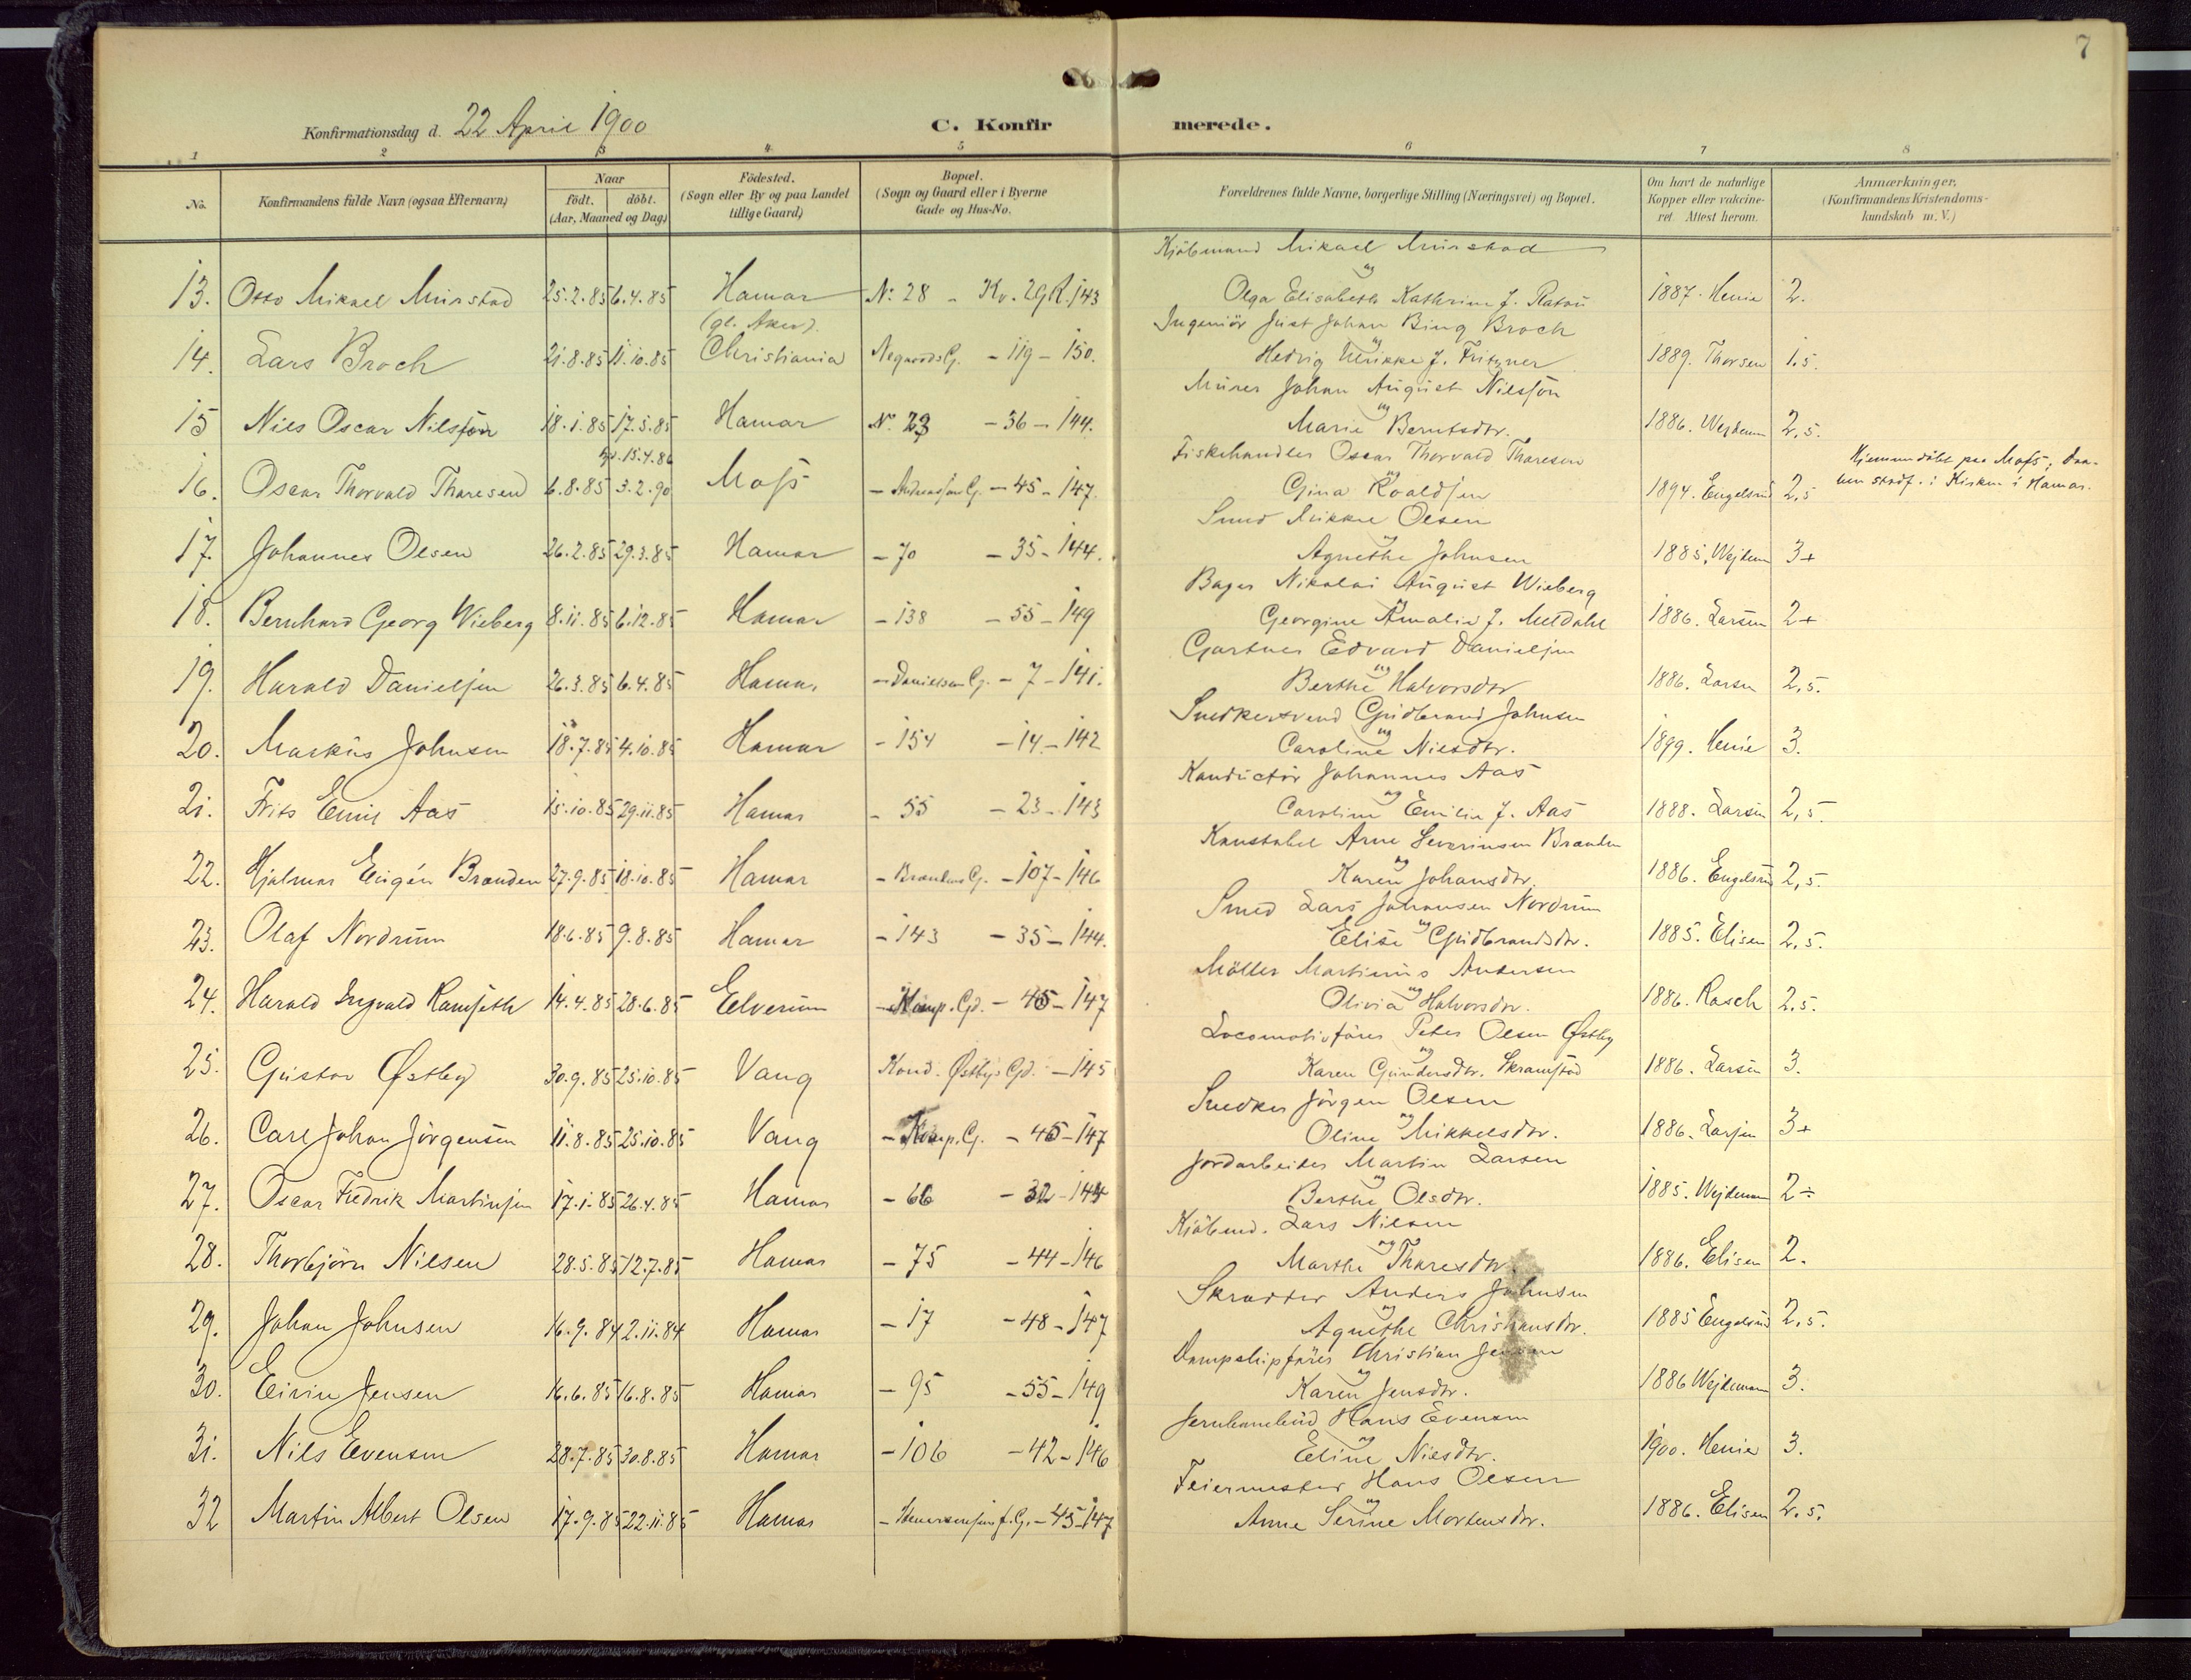 7
Konfirmationsdag d. 22 April 1900
C. Konfirmerede.
1 2 3 4 5 6 7 8
No. Konfirmandens fulde Navn (ogsaa Efternavn) Naar födt. döbt. (Aar, Maaned og Dag) Födested. (Sogn eller By og paa Landet tillige Gaard) Bopæl. (Sogn og Gaard eller i Byerne Gade og Hus-No. Forældrenes fulde Navne, borgerlige Stilling (Næringsvei) og Bopæl. Om havt de naturlige Kopper eller vakcineret. Attest herom. Anmærkninger, (Konfirmandens Kristendomskundskab m. V.)
Kjöbmand Mikael Mürstad
og
13. Otto Mikael Mürstad 25.2.85 6.4.85 Hamar No 28 - Kv. 29 R. 143 Olga Elisabeth Kathrine f. Platou 1887. Henie 2.
(gl. Aker). Ingeniör Just Johan Bing Broch
og
14. Lars Broch 21.8.85 11.10.85 Christiania G. - 119 - 150. Hedvig Ulrikke f. Fritzner 1889. Thorsen 1.5.
Murer Johan August Nilsson
og
15 Nils Oscar Nilsson 18.1.85 17.5.85 Hamar No 23 - 36 - 144. Marie Berntsdtr. 1886. Wejdemann 2,5.
15.4.86 Fiskehandler Oscar Thorvald Thoresen
og Hjemmedöbt paa Moss; Daaben stadf. i Kirken i Hamar.
16. Oscar Thorvald Thoresen 6.8.85 3.2.90 Moss - G. - 45 - 147. Gina Roaldsen 1894. Engelsrud 2,5
Smed Mikkel Olsen
og
17. Johannes Olsen 26.2.85 29.3.85 Hamar - 70 - 35 - 144. Agnethe Johnsen 1885. Wejdem 3+
Bager Nikolai August Wieberg
og
18. Bernhard Georg Wieberg 8.11.85 6.12.85 Hamar - 138 - 55 - 149 Georgine Amalie f. Meldahl 1886. Larsen 2+
Gartner Edvard Danielsen
og
19. Harald Danielsen 26.3.85 6.4.85 Hamar - Danielsen G. - 7 - 141. Berthe Halvorsdtr 1886. Larsen 2,5.
Snedkersvend Gudbrand Johnsen
og
20. Markus Johnsen 18.7.85 4.10.85 Hamar - 154 - 14 - 142 Caroline Nilsdtr. 1899. Henie 3.
Konductör Johannes Aas
og
21. Frits Emil Aas 15.10.85 29.11.85 Hamar - 55 - 23 - 143 Caroline Emilie f. Aas 1888. Larsen 2,5.
Konstabel Arne Severinsen Brænden
og
22. Hjalmar Eugén Brænden 27.9.85 18.10.85 Hamar - Brændens G. - 107 - 146 Karen Johansdtr. 1886. Engelsrud 2,5.
Smed Lars Johansen Nordrum
og
23. Olaf Nordrum 18.6.85 9.8.85 Hamar - 143 - 35 - 144. Elise Gudbrandsdtr. 1885. Elisen 2,5.
Möller Martinius Andersen
og
24. Harald Ingvald Ramseth 14.4.85 28.6.85 Elverum - Komp. Gd. - 45 - 147 Olivia Halvorsdtr. 1886. Rasch 2,5.
Locomotivförer Peter Olsen Østby
og
25. Gustav Østby 30.9.85 25.10.85 Vang Kond. Østbys Gd. - 145 Karen Gundersdtr. Skramstad 1886. Larsen 3.
Snedker Jörgen Olsen
og
26. Carl Johan Jörgensen 11.8.85 25.10.85 Vang - Komp. G. - 45 - 147 Oline Mikkelsdtr. 1886. Larsen 3+
Jordarbeider Martin Larsen
og
27. Oscar Fredrik Martinsen 17.1.85 26.4.85 Hamar - 66 - 32 - 144 Berthe Olsdtr. 1885. Wejdemann 2÷
Kjöbmd. Lars Nilsen
og
28. Thorbjörn Nilsen 28.5.85 12.7.85 Hamar - 75 - 44 - 146 Marthe Thoresdtr. 1886. Elisen 2.
Skrædder Anders Johnsen
og
29. Johan Johnsen 16.9.84 2.11.84 Hamar - 17 - 48 - 147 Agnethe Christiansdtr. 1885 Engelsrud 2,5.
Dampskipförer Christian Jensen
og
30. Jensen 16.6.85 16.8.85 Hamar - 95 - 55 - 149 Karen Jensdtr. 1886 Wejdemann 3.
Jernbanebud Hans Evensen
og
31. Nils Evensen 28.7.85 30.8.85 Hamar - 106 - 42 - 146 Eline Nilsdtr. 1900. Henie 3.
Feiermester Hans Olsen
og
32 Martin Albert Olsen 17.9.85 22.11.85 Hamar - G. - 45 - 147 Anne Serine Mortensdtr. 1886. Elisen 2.5.